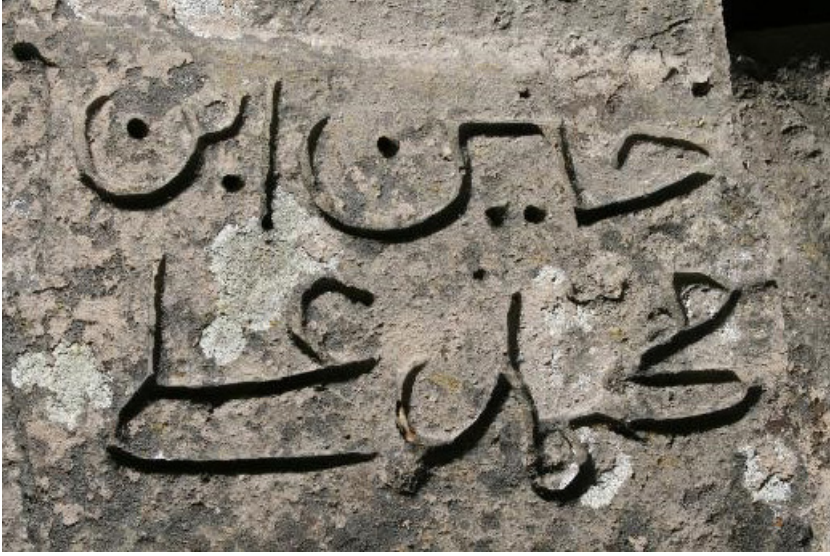 حسین ابن
محمد علی